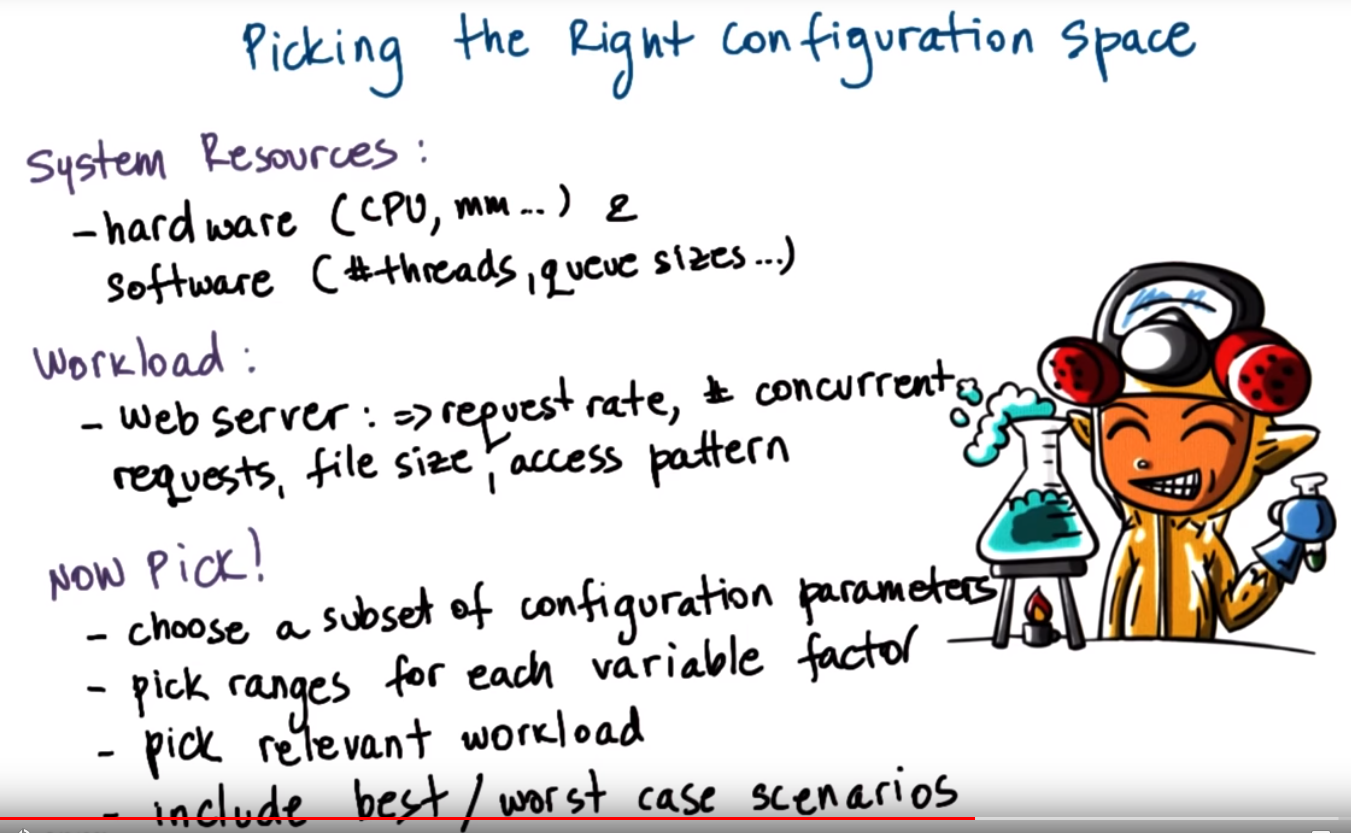 Picking the Right Configuration Space
System Resources:
- hardware (CPU, mm...) &
software (#threads, queue sizes...)
Workload:
- web server: => request rate, # concurrent
requests, file size, access pattern
NOW Pick!
- choose a subset of configuration parameters
- pick ranges for each variable factor
- pick relevant workload
- include best/worst case scenarios